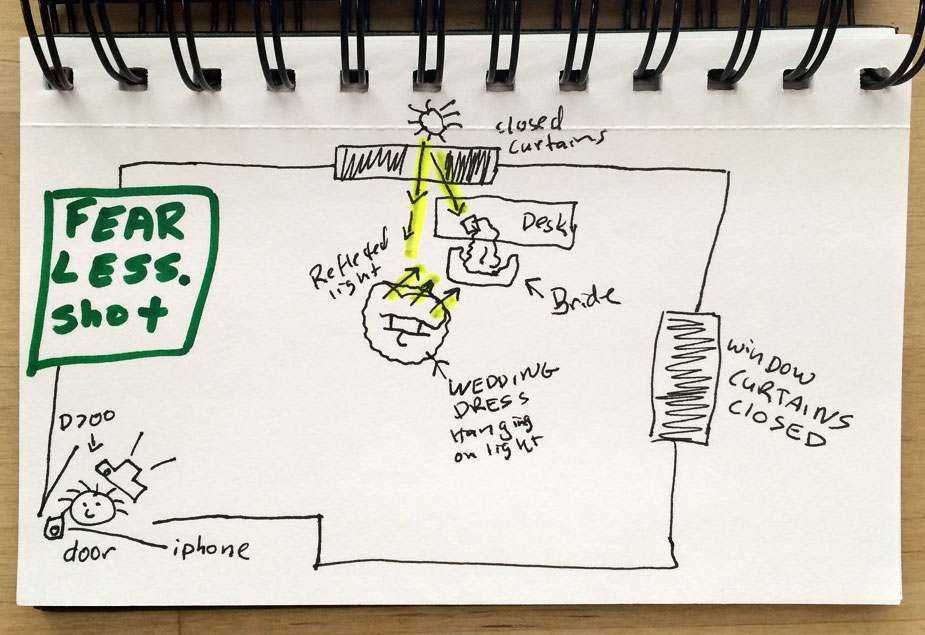 closed
curtains
FEAR
LESS.
shot
Desk
Reflected
light
Bride
WINDOW
CURTAINS
CLOSED
WEDDING
DRESS
Hanging
on light
D700
door
iphone